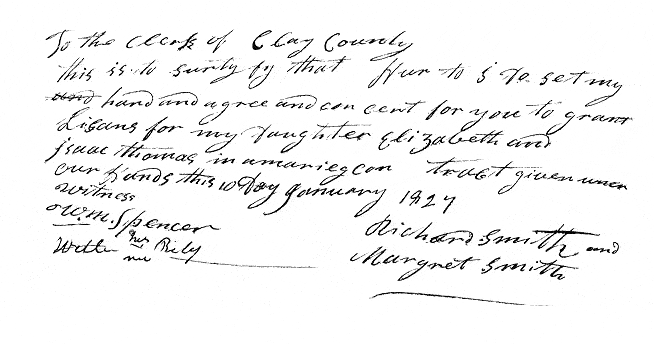 To the Clerk of Clay County
this is to surtyfy that I do set my
hand and agree and concent for you to grant
Lisans for my Daughter Elizabeth and
Isaac Thomas in a marieg con tract given under
our hands this 10 Day January 1827
Witness
Wm. Spencer
his Rily
Richard Smith and
Margret Smith